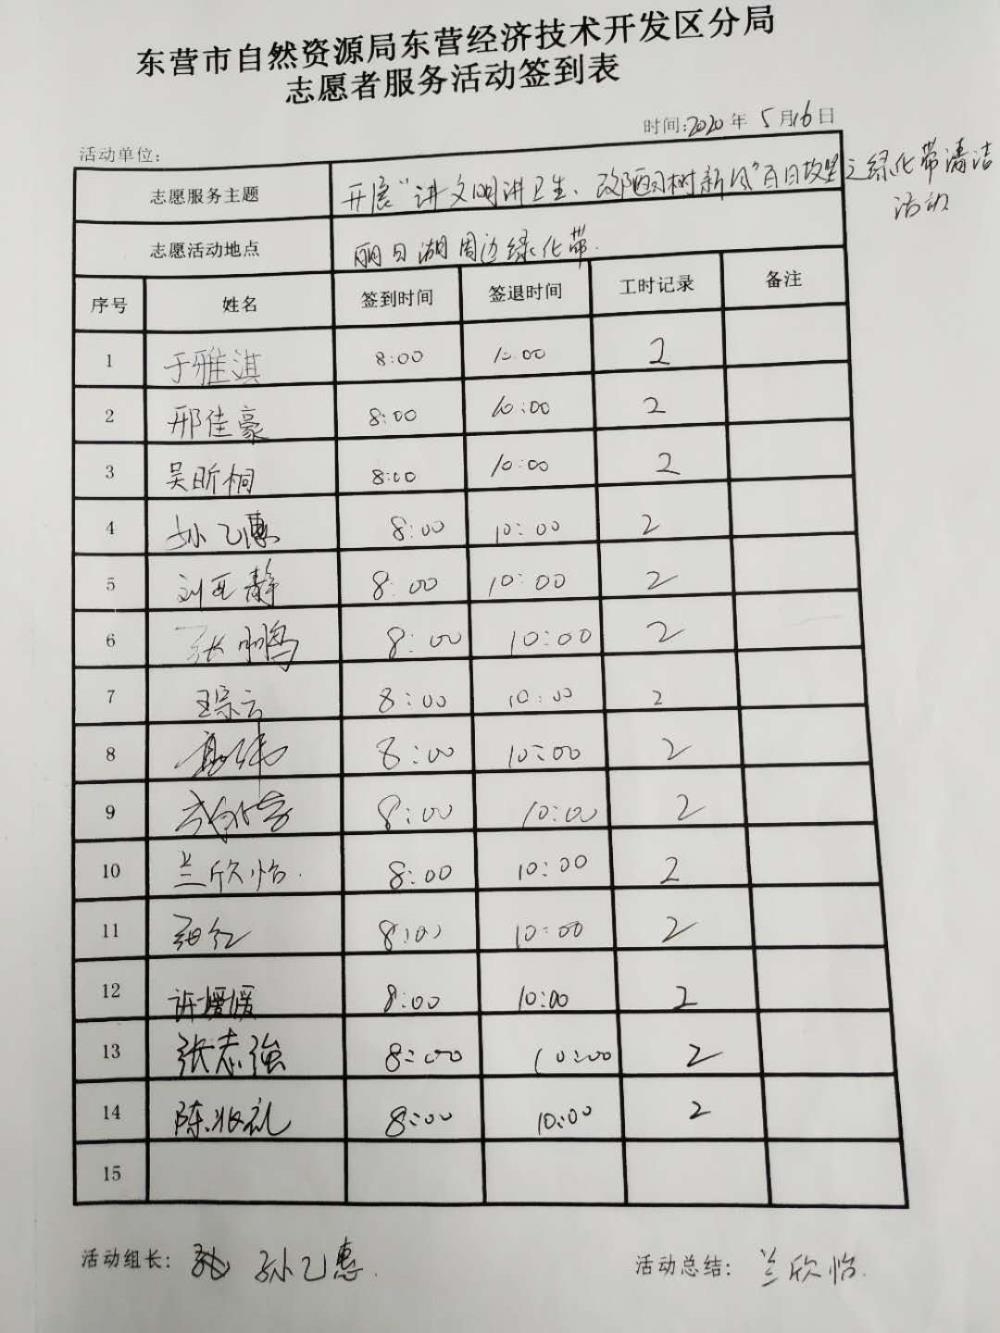 东营市自然资源局东营经济技术开发区分局
志愿者服务活动签到表
时间:2020年 5月16日
活动单位:
志愿服务主题 开展“讲文明讲卫生、改陋习树新风”百日攻坚之绿化带清洁
活动
志愿活动地点 丽日湖周边绿化带.
序号 姓名 签到时间 签退时间 工时记录 备注
1 于雅淇 8:00 10:00 2
2 邢佳豪 8:00 10:00 2
3 吴昕桐 8:00 10:00 2
4 孙乙惠 8:00 10:00 2
5 刘亚静 8:00 10:00 2
6 张鹏 8:00 10:00 2
7 王宗云 8:00 10:00 2
8 8:00 10:00 2
9 8:00 10:00 2
10 兰欣怡. 8:00 10:00 2
11 8:00 10:00 2
12 许媛媛 8:00 10:00 2
13 张志強 8:00 10:00 2
14 陈 礼 8:00 10:00 2
15
活动组长: 孙乙惠. 活动总结: 兰欣怡.